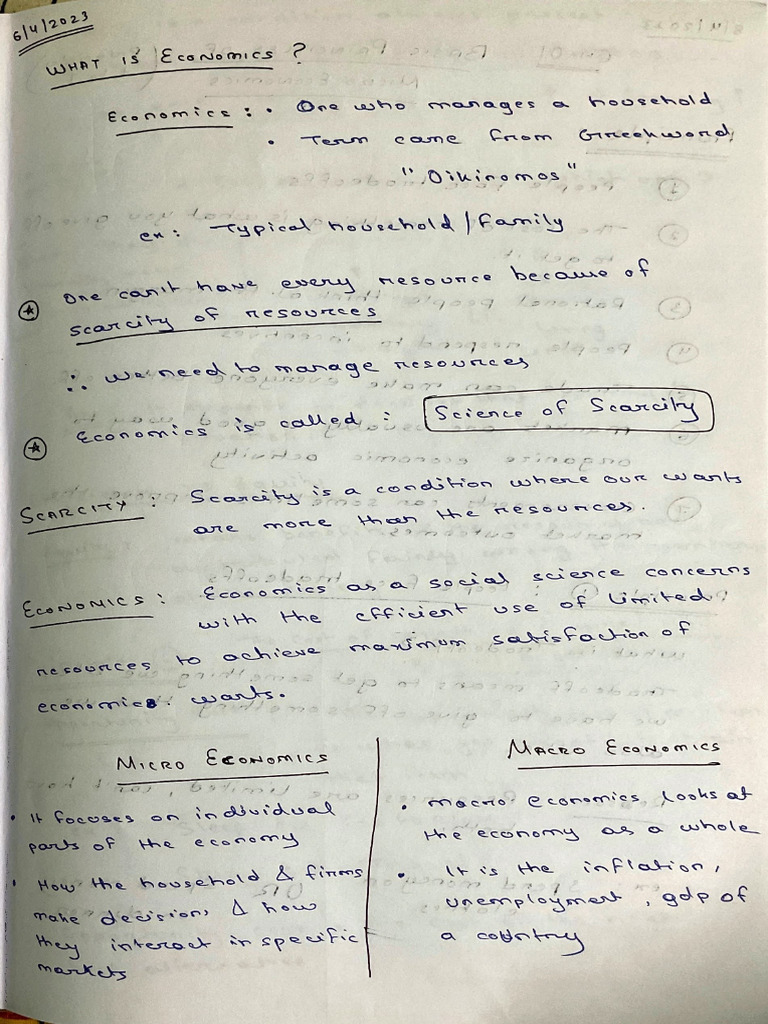 6/4/2023
WHAT IS ECONOMICS ?
Economics : • One who manages a household
• Term came from Greekword
"Oikinomos"
ex: Typical household / family
One can't have every resource because of
scarcity of resources
∴ we need to manage resources
Economics is called : Science of Scarcity
SCARCITY : Scarcity is a condition where our wants
are more than the resources.
ECONOMICS : Economics as a social science concerns
with the efficient use of limited
resources to achieve maximum satisfaction of
economics wants.
MICRO ECONOMICS
• It focuses on individual
parts of the economy
• How the household & firms
make decisions & how
they interact in specific
markets
MACRO ECONOMICS
• macro economics looks at
the economy as a whole
• It is the inflation,
unemployment, gdp of
a country